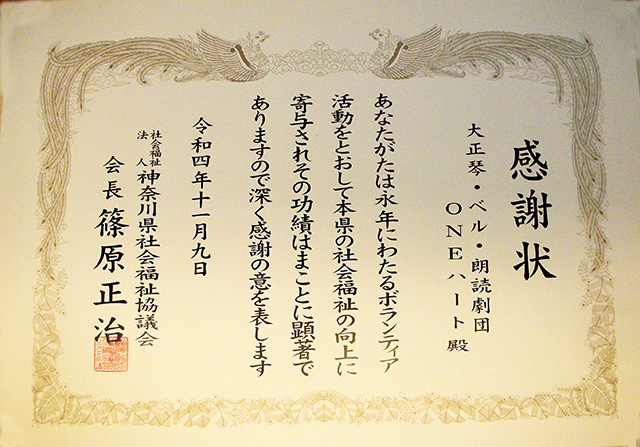 感謝状
大正琴・ベル・朗読劇団
ONEハート 殿
あなたがたは永年にわたるボランティア
活動をとおして本県の社会福祉の向上に
寄与されその功績はまことに顕著で
ありますので深く感謝の意を表します
令和四年十一月九日
社会福祉法人 神奈川県社会福祉協議会
会長 篠原正治